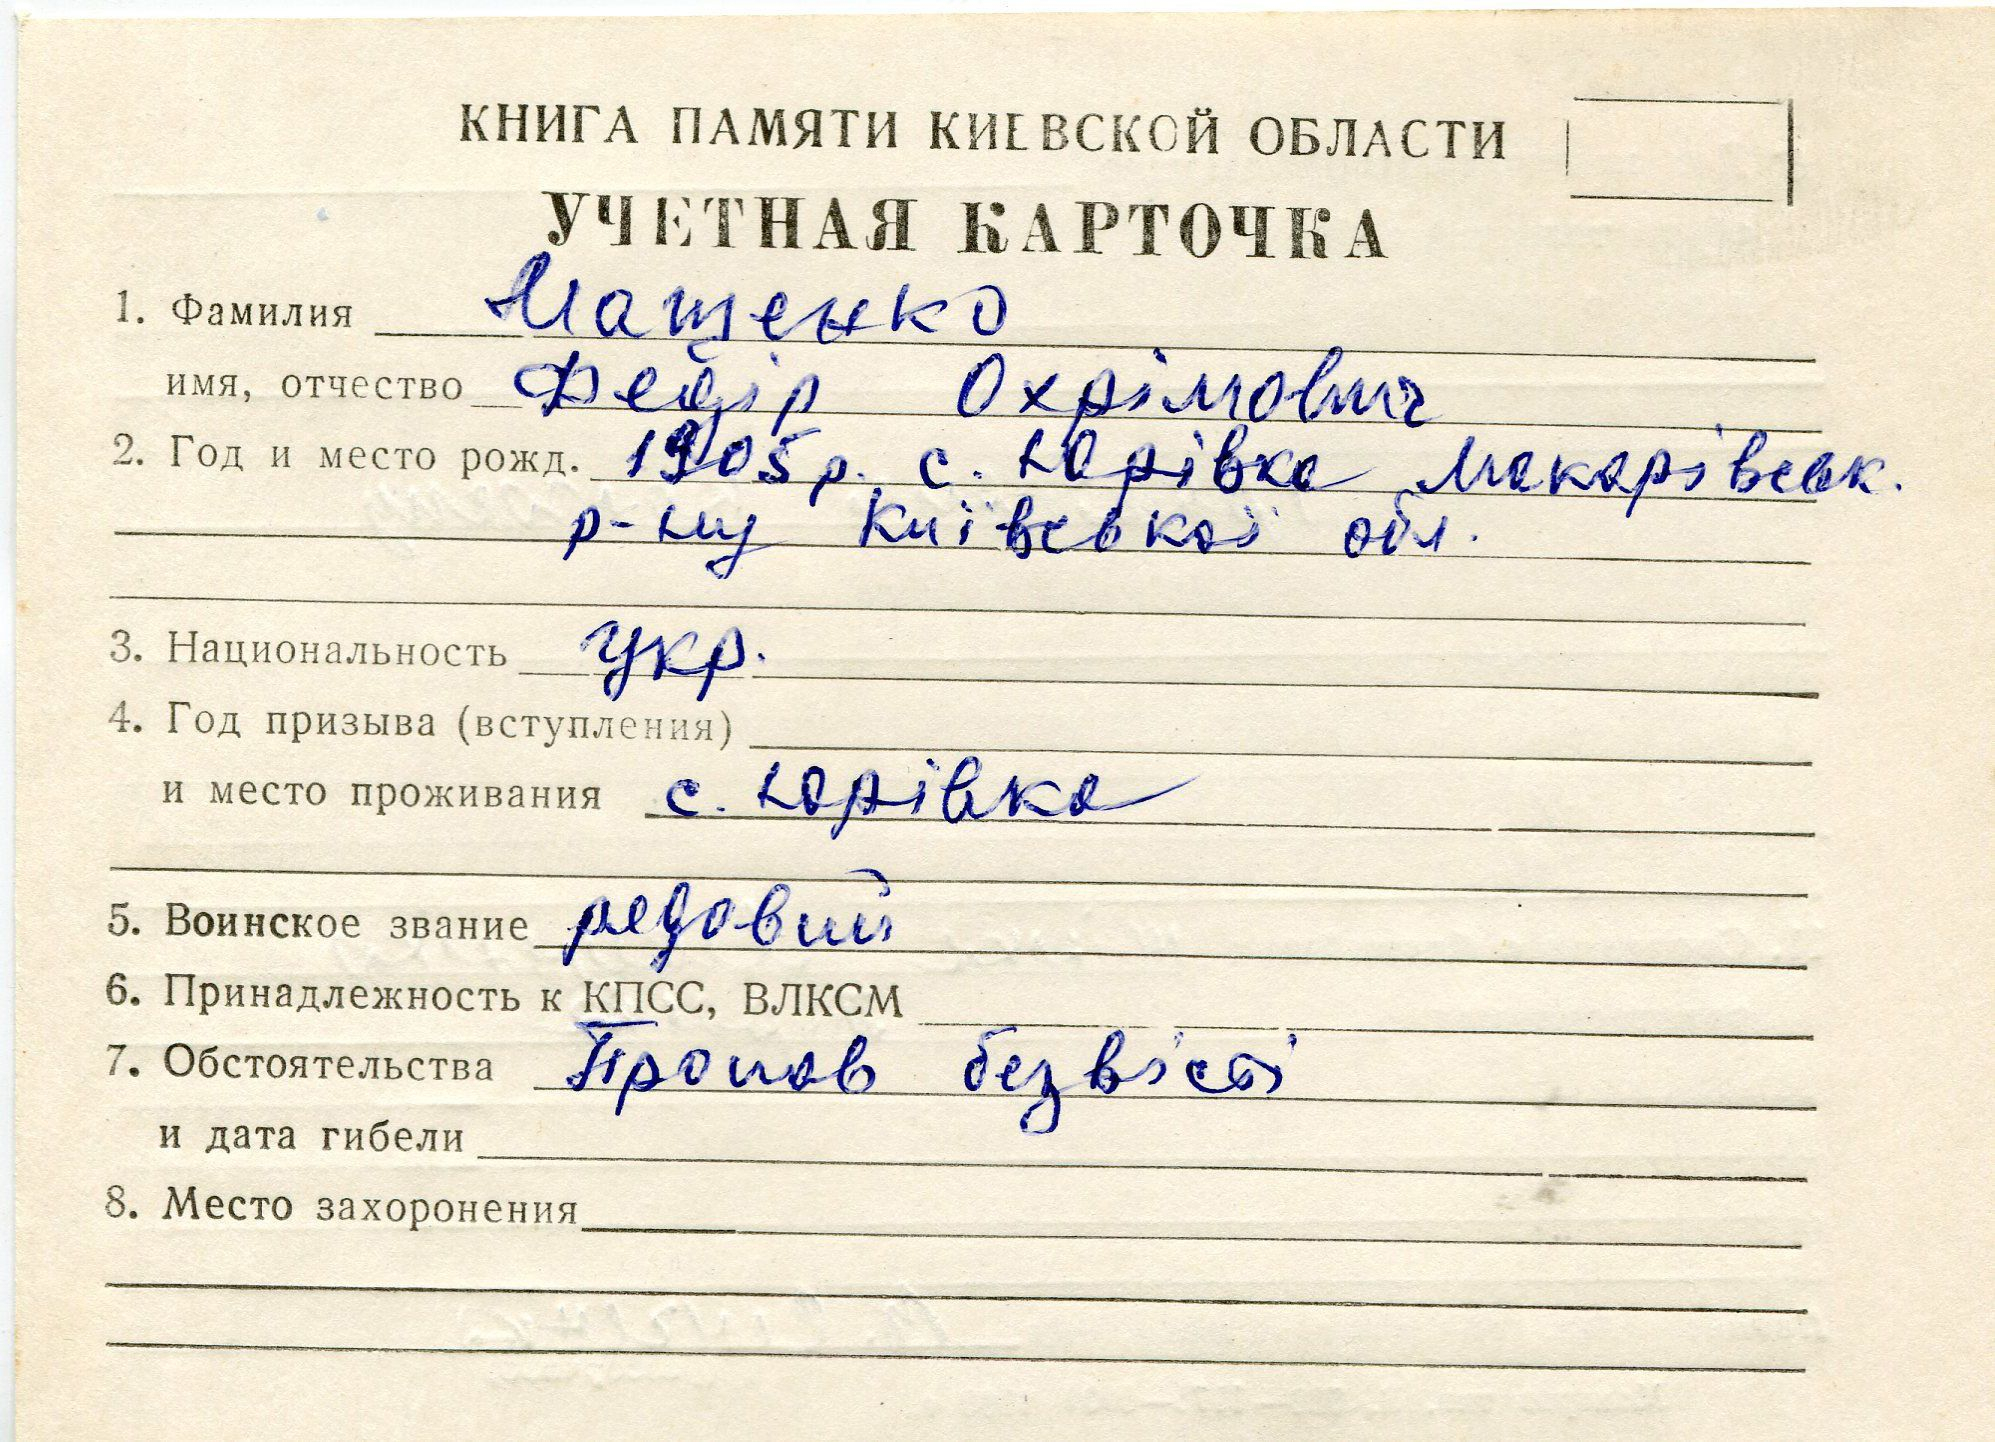 КНИГА ПАМЯТИ КИЕВСКОЙ ОБЛАСТИ
УЧЕТНАЯ КАРТОЧКА
1. Фамилия Мащенко
имя, отчество Федір Охрімович
2. Год и место рожд. 1905 р. с. Юрівка Макарівськ.
р-ну Київської обл.
3. Национальность укр.
4. Год призыва (вступления)
и место проживания с. Юрівка
5. Воинское звание редовий
6. Принадлежность к КПСС, ВЛКСМ
7. Обстоятельства Пропав безвісті
и дата гибели
8. Место захоронения